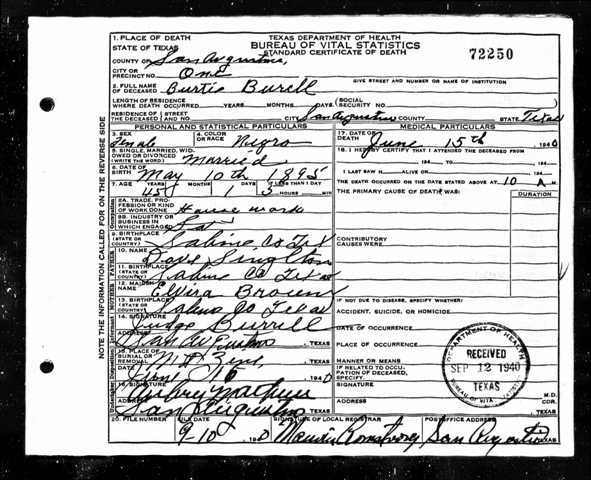 1. PLACE OF DEATH
STATE OF TEXAS
TEXAS DEPARTMENT OF HEALTH
BUREAU OF VITAL STATISTICS
STANDARD CERTIFICATE OF DEATH
72250
COUNTY OF San Augustine,
CITY OR PRECINCT NO. One
GIVE STREET AND NUMBER OR NAME OF INSTITUTION
2. FULL NAME OF DECEASED Burtie Burell
LENGTH OF RESIDENCE WHERE DEATH OCCURRED YEARS MONTHS DAYS (SOCIAL SECURITY NO.
RESIDENCE OF THE DECEASED STREET AND NO. CITY San Augustine COUNTY STATE Texas
PERSONAL AND STATISTICAL PARTICULARS
MEDICAL PARTICULARS
3. SEX Female
4. COLOR OR RACE Nigro
17. DATE OF DEATH June 15th 1940
5. SINGLE, MARRIED, WIDOWED OR DIVORCED (WRITE THE WORD) Married
18. I HEREBY CERTIFY THAT I ATTENDED THE DECEASED FROM
194 TO 194
6. DATE OF BIRTH May 10th 1895
I LAST SAW H ALIVE ON 194
7. AGE YEARS 45 MONTHS 1 DAYS 5 IF LESS THAN 1 DAY HOURS MIN
THE DEATH OCCURRED ON THE DATE STATED ABOVE AT 10 A M
THE PRIMARY CAUSE OF DEATH WAS:
DURATION
8A. TRADE, PROFESSION OR KIND OF WORK DONE House work
8B. INDUSTRY OR BUSINESS IN WHICH ENGAGED
9. BIRTHPLACE (STATE OR COUNTRY) Sabine Co Tex
CONTRIBUTORY CAUSES WERE:
10. NAME Dave Singlton
11. BIRTHPLACE (STATE OR COUNTRY) Sabine Co Texas
12. MAIDEN NAME Elvira Brown
13. BIRTHPLACE (STATE OR COUNTRY) Sabine Co Texas
IF NOT DUE TO DISEASE, SPECIFY WHETHER:
ACCIDENT, SUICIDE, OR HOMICIDE
14. SIGNATURE Judge Burrell
DATE OF OCCURRENCE
ADDRESS TEXAS
PLACE OF OCCURRENCE
15. PLACE OF BURIAL OR REMOVAL Mt Zine, TEXAS
MANNER OR MEANS
DATE 16 1940
IF RELATED TO OCCUPATION OF DECEASED, SPECIFY
16. SIGNATURE
SIGNATURE M.D. COR.
ADDRESS TEXAS
ADDRESS TEXAS
20. FILE NUMBER FILE DATE 9-10 1940
SIGNATURE OF LOCAL REGISTRAR POSTOFFICE ADDRESS TEXAS
Armstrong San Augustine
DEPARTMENT OF HEALTH
RECEIVED
SEP 12 1940
TEXAS
BUREAU OF VITAL
NOTE THE INFORMATION CALLED FOR ON THE REVERSE SIDE